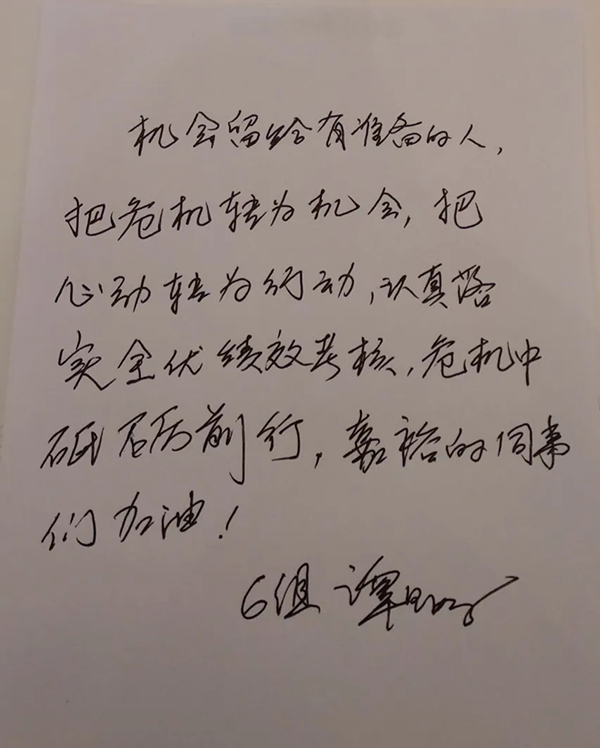 机会留给有准备的人，
把危机转为机会，把
心动转为行动，认真落
实全优绩效考核，危机中
砥砺前行，嘉裕的同事
们加油！
6组 谭